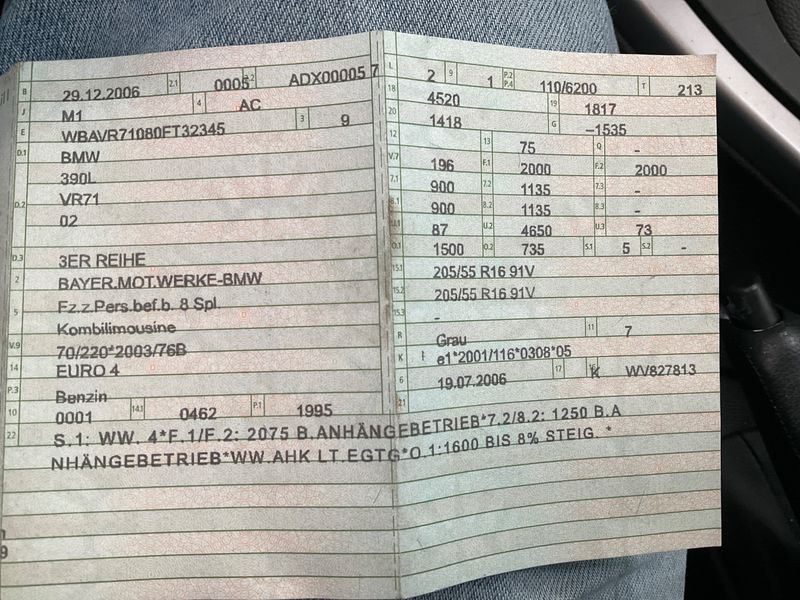 B 29.12.2006 2.1 0005 2.2 ADX00005 7
J M1 4 AC
E WBAVR71080FT32345 3 9
D.1 BMW
390L
D.2 VR71
02
D.3 3ER REIHE
2 BAYER.MOT.WERKE-BMW
5 Fz.z.Pers.bef.b. 8 Spl.
Kombilimousine
V.9 70/220*2003/76B
14 EURO 4
P.3 Benzin
10 0001 14.1 0462 P.1 1995
L 2 9 1 P.2 P.4 110/6200 T 213
18 4520 19 1817
20 1418 G –1535
12 13 75 Q -
V.7 196 F.1 2000 F.2 2000
7.1 900 7.2 1135 7.3 -
8.1 900 8.2 1135 8.3 -
U.1 87 U.2 4650 U.3 73
O.1 1500 O.2 735 S.1 5 S.2 -
15.1 205/55 R16 91V
15.2 205/55 R16 91V
15.3 -
R Grau 11 7
K e1*2001/116*0308*05
6 19.07.2006 17 K 16 WV827813
21
22 S.1: WW. 4*F.1/F.2: 2075 B.ANHÄNGEBETRIEB*7.2/8.2: 1250 B.A
NHÄNGEBETRIEB*WW.AHK LT.EGTG*O.1:1600 BIS 8% STEIG. *
9